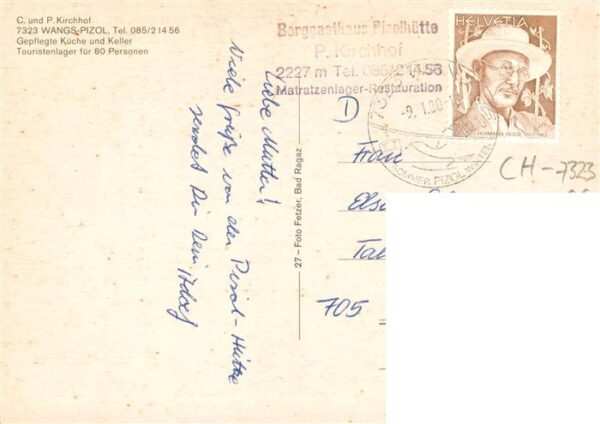 C. und P. Kirchhof
7323 WANGS-PIZOL, Tel. 085/2 14 56
Gepflegte Küche und Keller
Touristenlager für 80 Personen
Berggasthaus Pizolhütte
P. Kirchhof
2227 m Tel. 085/2 14 56
Matratzenlager-Restauration
HELVETIA
HERMANN HESSE
-9.1.80
SOMMER PIZOL WINTER
CH-7323
Liebe Mutter!
Viele Grüße von der Pizol-Hütte
sendet Dir Dein
27 – Foto Fetzer, Bad Ragaz
D
Frau
Els
705